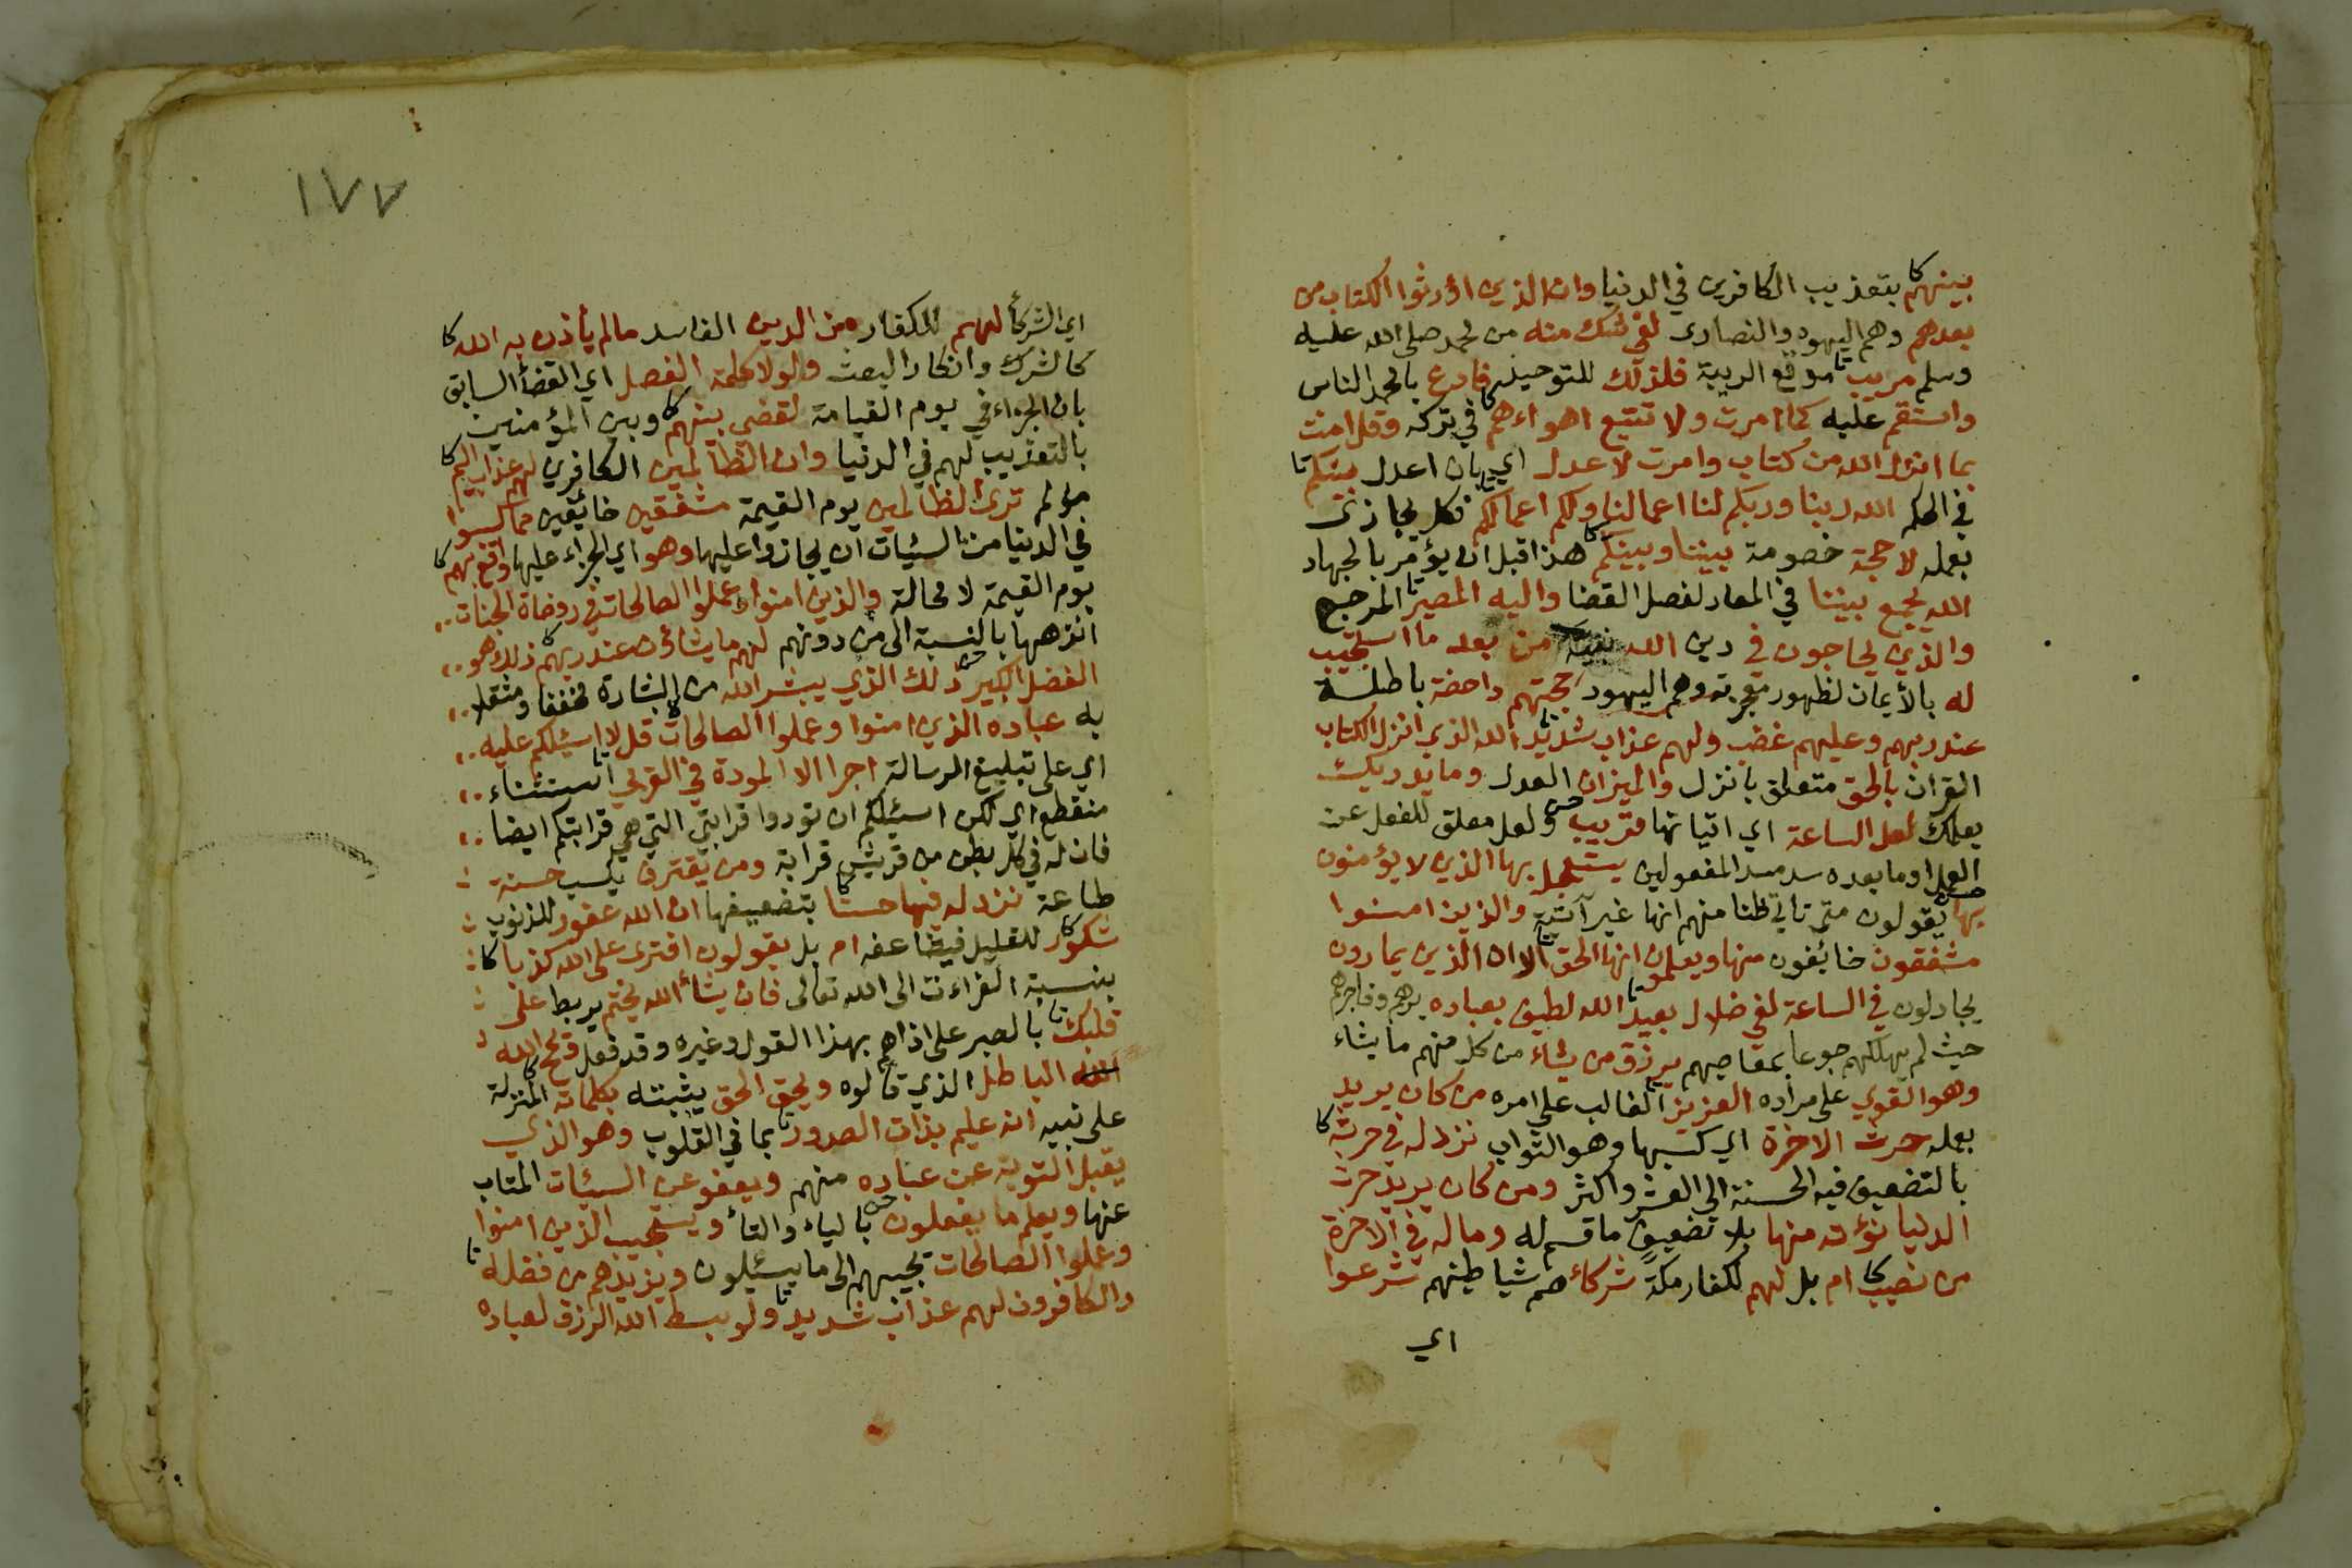 بينهم بتعذيب الكافرين في الدنيا وان الذين اورثوا الكتاب من
بعدهم وهم اليهود والنصارى لفي شك منه من محمد صلى الله عليه
وسلم مريب موقع الريبة فلذلك للتوحيد فادع يا محمد الناس
واستقم عليه كما امرت ولا تتبع اهواءهم في تركه وقل امنت
بما انزل الله من كتاب وامرت لاعدل اي بان اعدل بينكم
في الحكم الله ربنا وربكم لنا اعمالنا ولكم اعمالكم فكل يجازى
بعمله لا حجة خصومة بيننا وبينكم هذا قبل ان يؤمر بالجهاد
الله يجمع بيننا في المعاد لفصل القضا واليه المصير المرجع
والذين يحاجون في دين الله نبيه من بعد ما استجيب
له بالأيمان لظهور معجزته وهم اليهود حجتهم داحضة باطلة
عند ربهم وعليهم غضب ولهم عذاب شديد الله الذي انزل الكتاب
القران بالحق متعلق بانزل والميزان العدل وما يدريك
يعلمك لعل الساعة اي اتيانها قريب ولعل معلق للفعل عن
العمل او ما بعده سد مسد المفعولين يستعجل بها الذين لا يؤمنون
بها يقولون متى تاتي ظنا منهم انها غير آتية والذين امنوا
مشفقون خائفون منها ويعلمون انها الحق الا ان الذين يمارون
يجادلون في الساعة لفي ضلال بعيد الله لطيف بعباده برهم وفاجرهم
حيث لم يهلكهم جوعا بمعاصيهم يرزق من يشاء من كل منهم ما يشاء
وهو القوي على مراده العزيز الغالب على امره من كان يريد
بعمله حرث الاخرة اي كسبها وهو الثواب نزد له في حرثه
بالتضعيف فيه الحسنة الى العشر واكثر ومن كان يريد حرث
الدنيا نؤته منها بلا تضعيف ما قسم له وما له في الاخرة
من نصيب ام بل لهم لكفار مكة شركاء هم شياطينهم شرعوا
اي
١٧٧
اي الشركأ لهم للكفار من الدين الفاسد مالم يأذن به الله
كالشرك وانكار البعث ولولا كلمة الفصل اي القضأ السابق
بان الجزاء في يوم القيامة لقضي بينهم وبين المؤمنين
بالتعذيب لهم في الدنيا وان الظالمين الكافرين لهم عذاب اليم
مولم ترى الظالمين يوم القيمة مشفقين خائفين مما كسبوا
في الدنيا من السيئات ان يجازوا عليها وهو اي الجزاء عليها واقع بهم
يوم القيمة لا محالة والذين امنوا وعملوا الصالحات في روضاة الجنات
انزهها بالنسبة الى من دونهم لهم ما يشاؤن عند ربهم ذلك هو
الفضل الكبير ذلك الذي يبشر الله من البشارة مخففا ومثقلا
به عباده الذين امنوا وعملوا الصالحات قل لا اسئلكم عليه
اي على تبليغ الرسالة اجرا الا المودة في القربى استثناء
منقطع اي لكن اسئلكم ان تودوا قرابتي التي هي قرابتكم ايضا
فان له في كل بطن من قريش قرابة ومن يقترف يكسب حسنة
طاعة نزد له فيها حسنا بتضعيفها ان الله غفور للذنوب
شكور للقليل فيضاعفه ام بل يقولون افترى على الله كذبا
بنسبة القراءت الى الله تعالى فان يشأ الله يختم يربط على
قلبك بالصبر على اذاهم بهذا القول وغيره وقد فعل ويمح الله
الله الباطل الذي قالوه ويحق الحق يثبته بكلماته المنزلة
على نبيه انه عليم بذات الصدور بما في القلوب وهو الذي
يقبل التوبة عن عباده منهم ويعفو عن السيئات المتاب
عنها ويعلم ما يفعلون بالياء والتأ ويستجيب الذين امنوا
وعملوا الصالحات يجيبهم الى ما يسئلون ويزيدهم من فضله
والكافرون لهم عذاب شديد ولو بسط الله الرزق لعباده